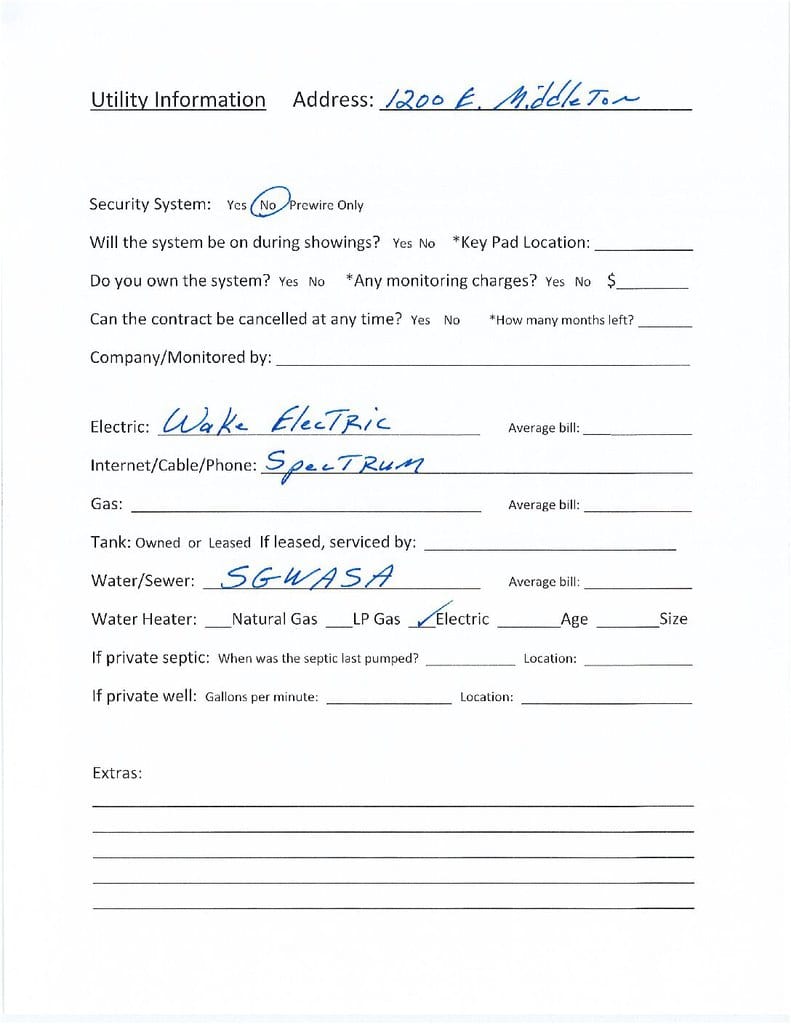 Utility Information Address: 1200 E. Middleton
Security System: Yes No Prewire Only
Will the system be on during showings? Yes No *Key Pad Location: ________
Do you own the system? Yes No *Any monitoring charges? Yes No $________
Can the contract be cancelled at any time? Yes No *How many months left? ________
Company/Monitored by: ________
Electric: Wake Electric Average bill: ________
Internet/Cable/Phone: Spectrum
Gas: ________ Average bill: ________
Tank: Owned or Leased If leased, serviced by: ________
Water/Sewer: SGWASA Average bill: ________
Water Heater: ___Natural Gas ___LP Gas ✓Electric ______Age ______Size
If private septic: When was the septic last pumped? ________ Location: ________
If private well: Gallons per minute: ________ Location: ________
Extras: